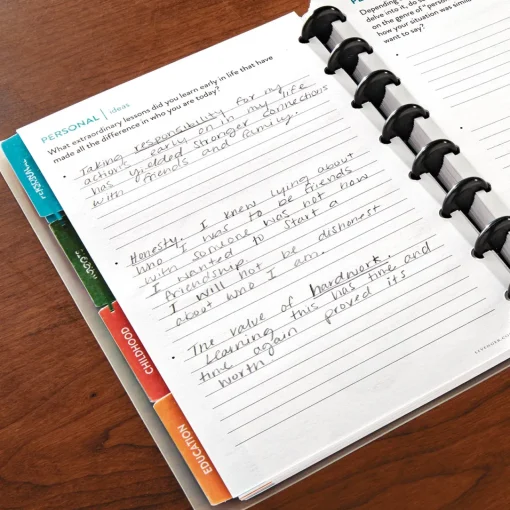 PERSONAL | ideas
What extraordinary lessons did you learn early in life that have
made all the difference in who you are today?
• Taking responsibility for my
actions early on in my life
has yielded stronger connections
with friends and family.
• Honesty. I knew lying about
who I was to be friends
with someone was not how
I wanted to start a
friendship.
I will not be dishonest
about who I am.
• The value of hardwork.
Learning this has time and
time again proved its
worth
PERSONAL
CHILDHOOD
EDUCATION
Depending
delve into it, do so
on the genre of "person
how your situation was simila
want to say?